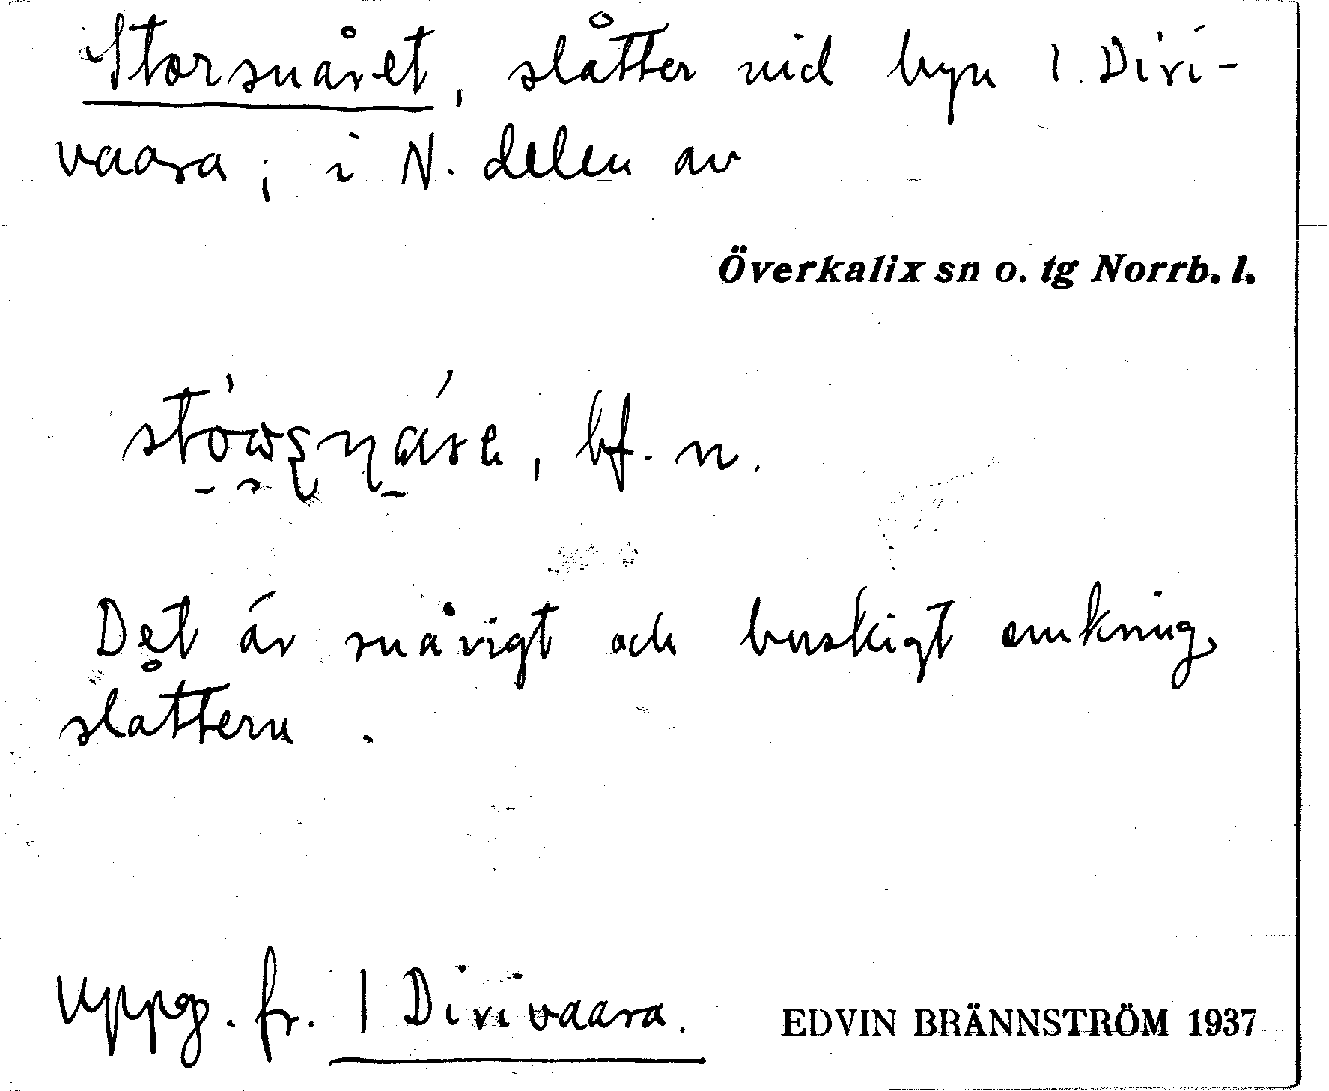 Storsnåret, slåtter vid byn 1. Diri-
vaara; i N. delen av
Överkalix sn o. tg Norrb. l.
bf. n.
Det är snårigt och buskigt omkring
slåttern.
Uppg. fr. 1 Dirivaara.
EDVIN BRÄNNSTRÖM 1937